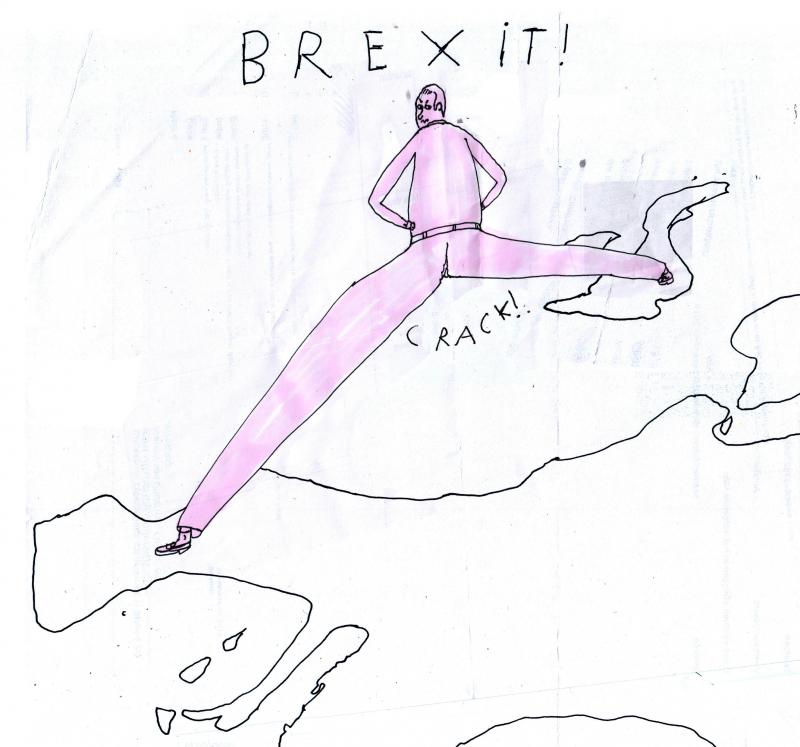 BREXiT!
CRACK!